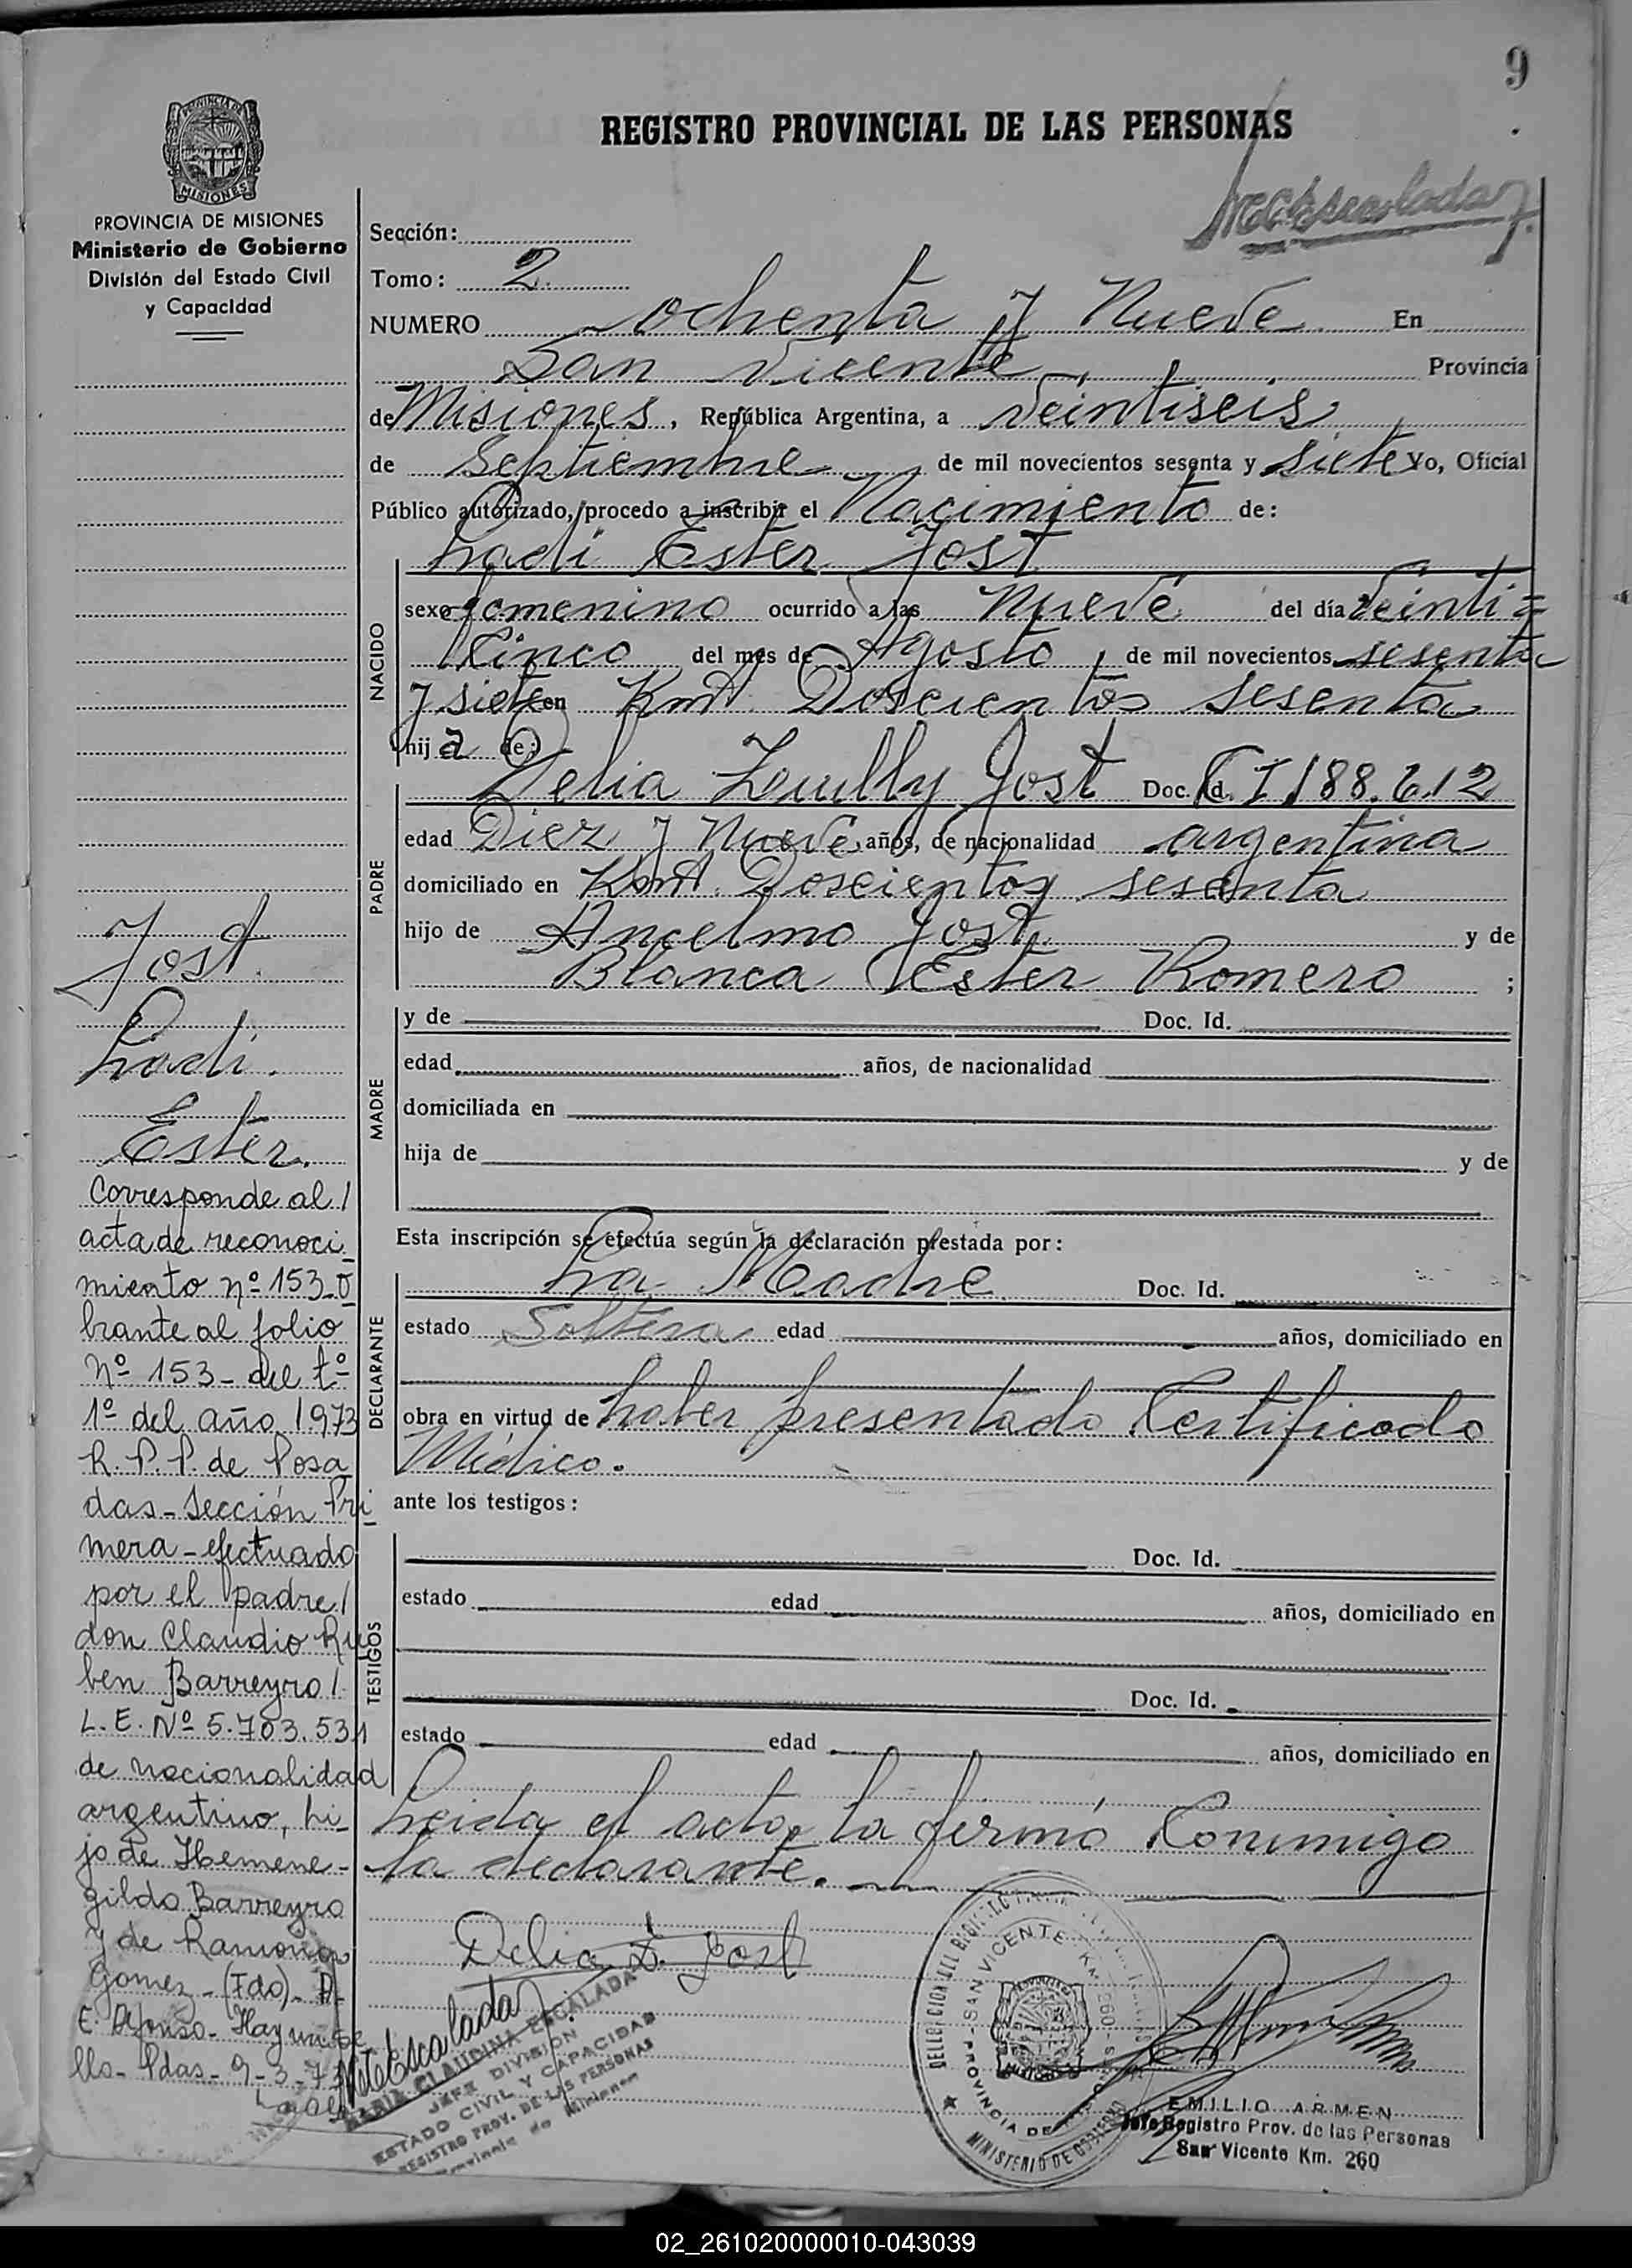 9
REGISTRO PROVINCIAL DE LAS PERSONAS
PROVINCIA DE
MISIONES
PROVINCIA DE MISIONES
Ministerio de Gobierno
División del Estado Civil
y Capacidad
Sección:
Tomo: 2.
NUMERO ochenta y Nueve En
San Vicente Provincia
de Misiones, República Argentina, a Veintiseis
de Septiembre de mil novecientos sesenta y siete yo, Oficial
Público autorizado, procedo a inscribir el Nacimiento de:
Ladi Ester Jost
NACIDO
sexo femenino ocurrido a las Nueve del día Veinti=
Cinco del mes de Agosto, de mil novecientos sesenta
y siete en Kmt. Doscientos sesenta
hija de:
PADRE
Delia Jost Doc. Id. C I 188.612
edad Diez y Nueve años, de nacionalidad argentina
domiciliado en Kmt. Doscientos sesenta
hijo de Ancelmo Jost. y de
Blanca Ester Romero ;
MADRE
y de Doc. Id.
edad años, de nacionalidad
domiciliada en
hija de y de
Esta inscripción se efectúa según la declaración prestada por:
DECLARANTE
La Madre Doc. Id.
estado Soltera edad años, domiciliado en
obra en virtud de haber presentado Certificado
Médico.
ante los testigos:
TESTIGOS
Doc. Id.
estado edad años, domiciliado en
Doc. Id.
estado edad años, domiciliado en
Leida el acta, la firmó Conmigo
la declarante.
Delia Z. Jost
Jost.
Ladi.
Ester.
Corresponde al/
acta de reconoci_
miento nº 153_o
brante al folio
Nº 153_ del tº
1º del año 1973
R. P. P. de Posa
das_Sección Pri_
mera_efectuado
por el padre/
don Claudio Ru
ben Barreyro/
L. E. Nº 5.703.531
de nacionalidad
argentino, hi_
jo de Hemene_
gildo Barreyro
y de Ramona
Gomez_(Fdo)_ D_
E. Afonso_ Hay un se
llo_ Pdas_ 9_3_73
MARIA CLAUDINA ESCALADA
JEFE DIVISION
ESTADO CIVIL Y CAPACIDAD
REGISTRO PROV. DE LAS PERSONAS
Provincia de Misiones
SAN VICENTE - KM. 260
PROVINCIA DE MISIONES
MINISTERIO DE GOBIERNO
EMILIO ARMEN
Jefe Registro Prov. de las Personas
San Vicente Km. 260
02_261020000010-043039